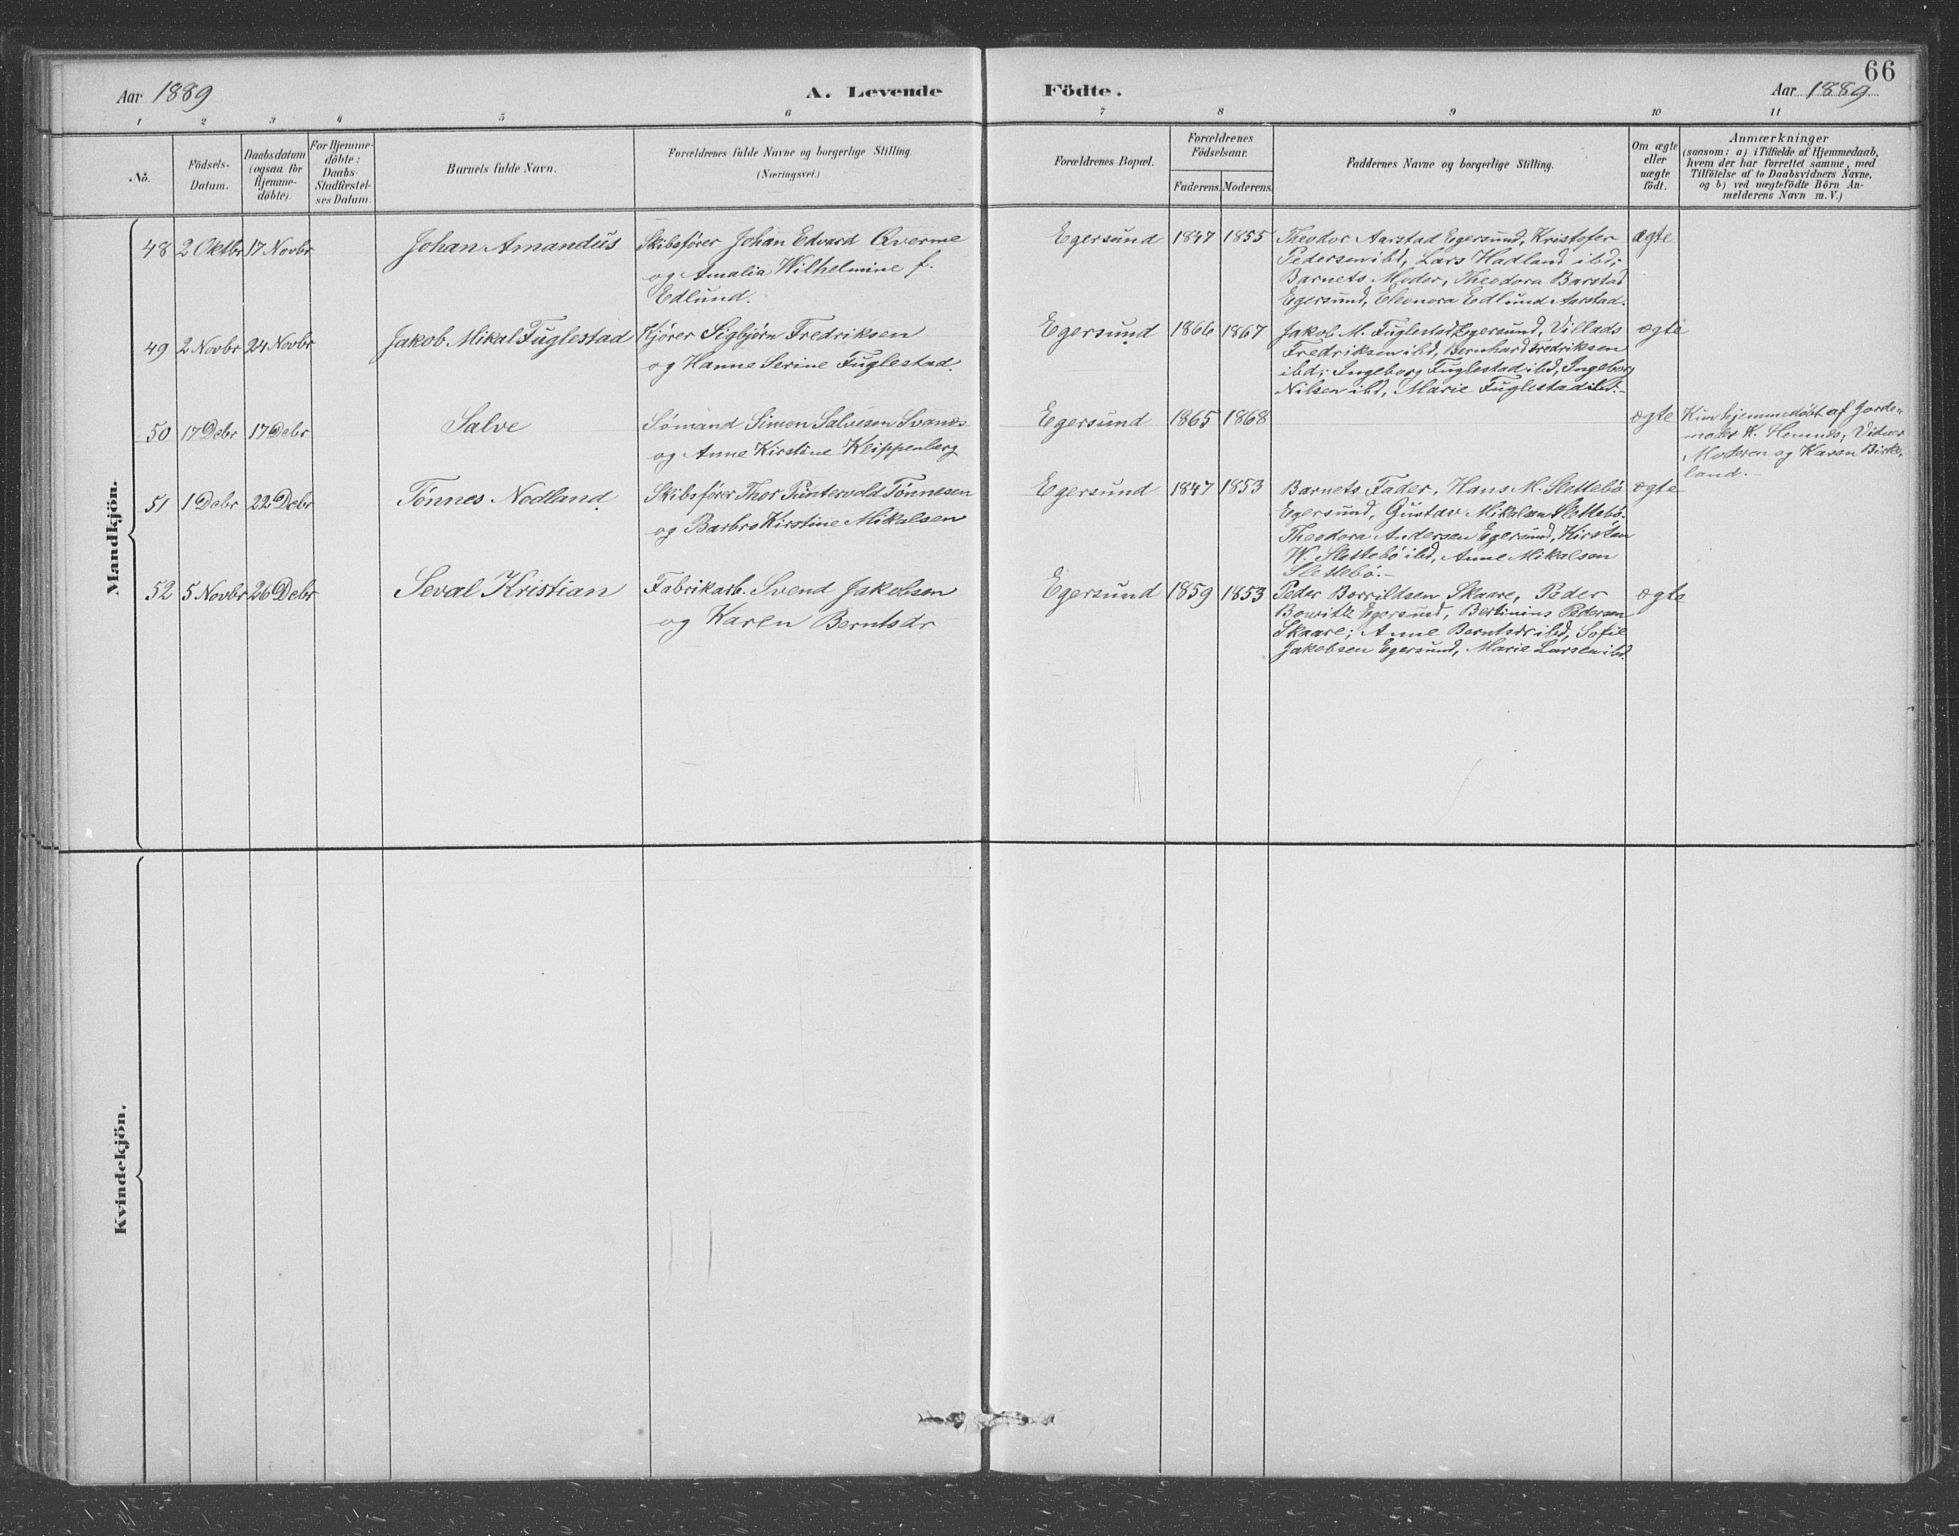 66
Aar 1889 A. Levende Födte. Aar 1889.
1 2 3 4 5 6 7 8 9 10 11
No.
Födsels-
Datum.
Daabsdatum
(ogsaa for
Hjemme-
döbte).
For Hjemme-
döbte:
Daabs-
Stadfæstel-
ses Datum.
Barnets fulde Navn.
Forældrenes fulde Navne og borgerlige Stilling.
(Næringsvei.)
Forældrenes Bopæl.
Forældrenes
Födselsaar.
Faderens. Moderens.
Faddernes Navne og borgerlige Stilling.
Om ægte
eller
uægte
födt.
Anmærkninger
(saasom: a) i Tilfælde af Hjemmedaab,
hvem der har forrettet samme, med
Tilföielse af to Daabsvidners Navne,
og b) ved uægtefödte Börn An-
melderens Navn m. V.)
Mandkjön.
48 2 Oktbr 17 Novbr Johan Amandus
Skibsfører Johan Edvard Qverme
og Amalia Wilhelmine f.
Edlund.
Egersund 1847 1855
Theodor Aarstad Egersund, Kristofer
Pedersen ibd, Lars Hadland ibd;
Barnets Moder, Theodora Barstad
Egersund, Eleonora Edlund Aarstad.
ægte
49 2 Novbr 24 Novbr Jakob Mikal Fuglestad
Kjører Sigbjørn Fredriksen
og Hanne Serine Fuglestad.
Egersund 1866 1867
Jakob M. Fuglestad Egersund, Villads
Fredriksen ibd, Bernhard Fredriksen
ibd; Ingeborg Fuglestad ibd, Ingeborg
Nilsen ibd, Marie Fuglestad ibd.-
ægte
50 17 Debr 17 Debr Salve
Sømand Simon Salvesen Svanes
og Anne Kirstine Kleppenberg
Egersund 1865 1868
ægte
Kun hjemmedøbt af Jorde-
moder K. Hemnes; Vidner
Moderen og Karen Birke-
land.-
51 1 Debr 22 Debr Tønnes Nodland.
Skibsfører Thor Puntervold Tønnesen
og Barbro Kirstine Mikalsen
Egersund 1847 1853
Barnets Fader, Hans M. Slettebø
Egersund, Gustav Mikalsen Slettebø.
Theodora Andersen Egersund, Kirsten
W. Slettebø ibd, Anne Mikalsen
Slettebø.-
ægte
52 5 Novbr 26 Debr Seval Kristian
Fabrikarb. Svend Jakobsen
og Karen Berntsdr
Egersund 1859 1853
Peder Borrildsen Skaare, Peder
Bowitz Egersund, Bertinius Pedersen
Skaare; Anne Berntsdr ibd, Sofie
Jakobsen Egersund, Marie Larsen ibd.
ægte
Kvindekjön.